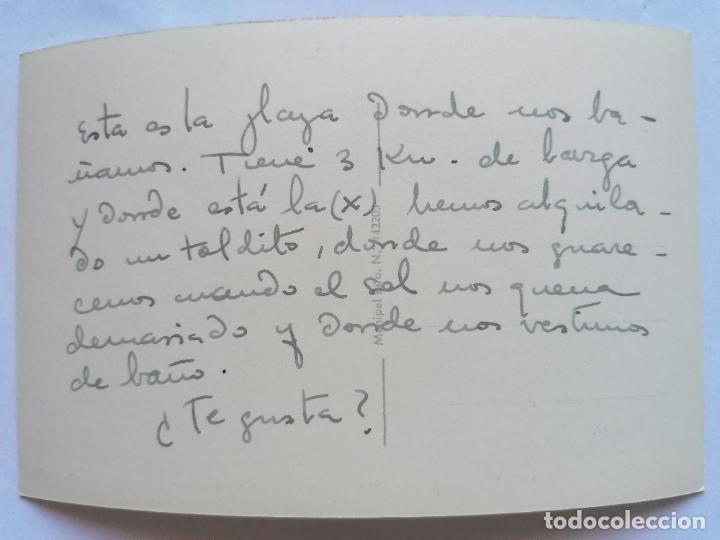 Esta es la playa Donde nos ba-
ñamos. Tiene 3 Km. de larga
y Donde está la (x) hemos alquila-
do un toldito, donde nos guare-
cemos cuando el sol nos quema
demasiado y Donde nos vestimos
de baño.
¿Te gusta?
todocoleccion
todocoleccion.net